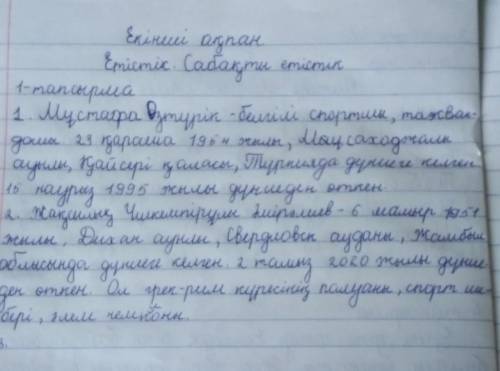 Екінші ақпан
Етістік. Сабақты етістік
1-тапсырма
1. Мұстафа Өзтүрік - белгілі спортшы, таэквон-
дошы 23 қараша 1954 жылы,
ауылы, Қайсері қаласы, Түркияда дүниеге келген
15 наурыз 1995 жылы дүниеден өткен.
2. Жақсылық Үшкемпірұлы - 6 мамыр 1951
жылы, Дихан ауылы, Свердловск ауданы, Жамбыл
облысында дүниеге келген. 2 тамыз 2020 жылы дүние-
ден өткен. Ол грек-рим күресінің палуаны, спорт ше-
бері, әлем чемпионы.
3.